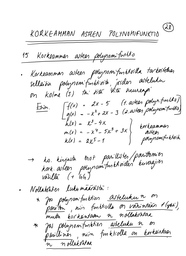 (28)
KORKEAMMAN ASTEEN POLYNOMIFUNKTIO
15 Korkeamman asteen polynomifunktio
• Korkeamman asteen polynomifunktiolla tarkoitetaan
sellaista polynomifunktiota, jonka asteluku
on kolme (3) tai sitä suurempi
Esim f(x) = 2x - 5 (1. asteen polynomifunktio)
(2. asteen polynomifunktio)
h(x) = x³ - 4x
m(x) = -x⁴ - 5x³ + 3x
korkeamman
asteen
polynomifunktioita
→ ks. kuvat
polynomifunktioiden kuvaajien
välillä
• Nollakohtien lukumäärästä:
* Jos polynomifunktion asteluku n on
pariton, niin funktiolla on vähintään 1 kpl,
mutta korkeintaan n nollakohtaa
* Jos polynomifunktion asteluku n on
parillinen niin funktiolla on korkeintaan
n nollakohtaa